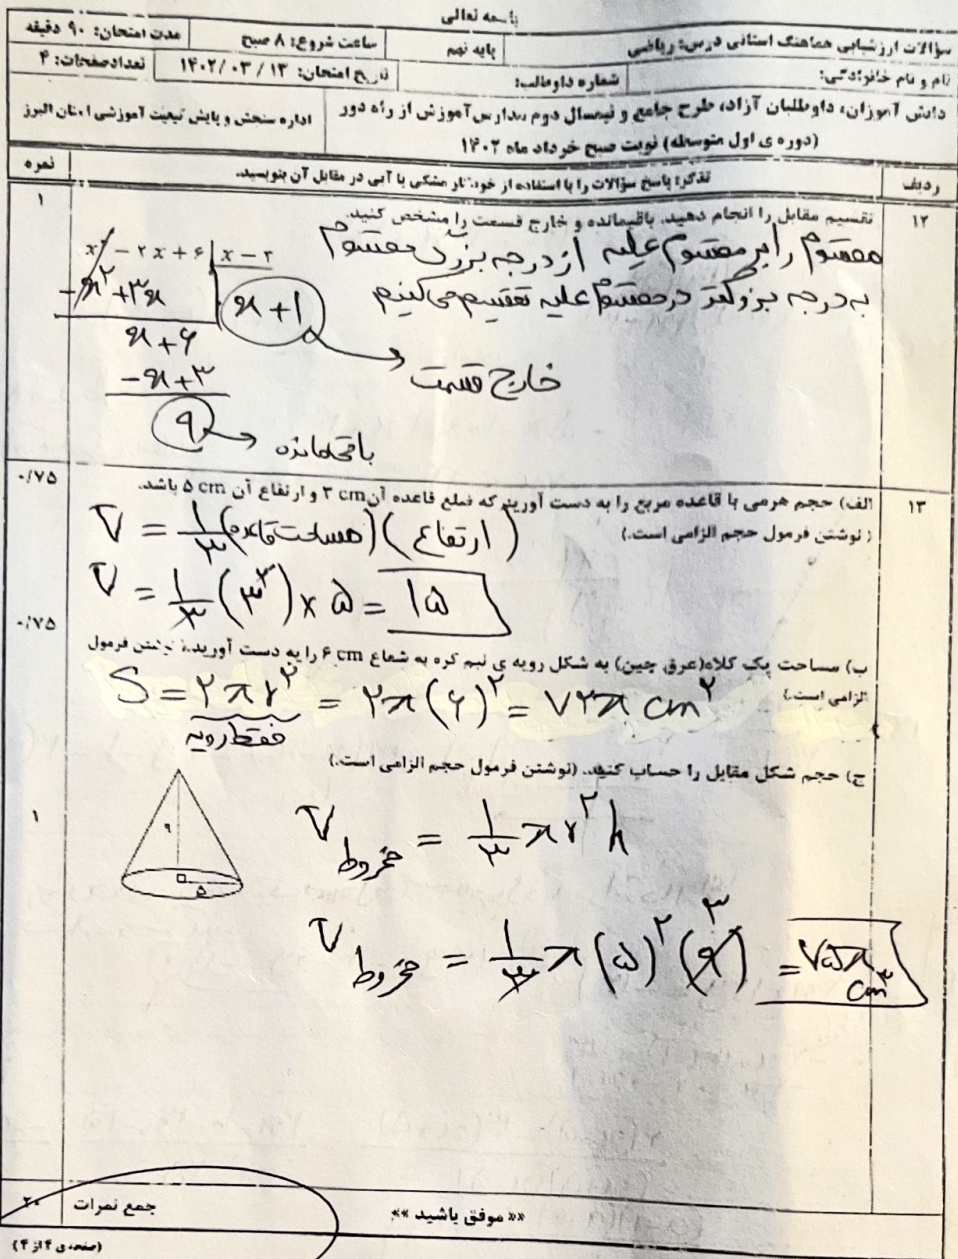 باسمه تعالی
سؤالات ارزشیابی هماهنگ استانی درس: ریاضی پایه نهم ساعت شروع: ۸ صبح مدت امتحان: ۹۰ دقیقه
نام و نام خانوادگی: شماره داوطلب: تاریخ امتحان: ۱۴۰۲/۰۳/۱۳ تعداد صفحات: ۴
دانش آموزان، داوطلبان آزاد، طرح جامع و نیمسال دوم مدارس آموزش از راه دور
(دوره ی اول متوسطه) نوبت صبح خرداد ماه ۱۴۰۲
اداره سنجش و پایش کیفیت آموزشی استان البرز
ردیف تذکر: پاسخ سؤالات را با استفاده از خودکار مشکی یا آبی در مقابل آن بنویسید. نمره
۱۲ تقسیم مقابل را انجام دهید. باقیمانده و خارج قسمت را مشخص کنید. ۱
مقسوم را بر مقسوم علیه از درجه بزرگ مقسوم
به درجه بزرگتر در مقسوم علیه تقسیم می کنیم
x² - ۲x + ۶ | x - ۳
-x² + ۳x
x + ۱
x + ۶
خارج قسمت
-x + ۳
۹
باقیمانده
۱۳ الف) حجم هرمی با قاعده مربع را به دست آورید که ضلع قاعده آن ۳ cm و ارتفاع آن ۵ cm باشد. ۰/۷۵
(نوشتن فرمول حجم الزامی است.)
V = ۱/۳ (مساحت قاعده) (ارتفاع)
V = ۱/۳ (۳²) × ۵ = ۱۵
ب) مساحت یک کلاه (عرق چین) به شکل رویه ی نیم کره به شعاع ۶ cm را به دست آورید. (نوشتن فرمول ۰/۷۵
الزامی است.)
S = ۲πr² = ۲π(۶)² = ۷۲π cm²
فقط رویه
ج) حجم شکل مقابل را حساب کنید. (نوشتن فرمول حجم الزامی است.) ۱
۹
۵
V مخروط = ۱/۳ πr²h
V مخروط = ۱/۳ π (۵)² (۹) ۳ = ۷۵π cm³
«« موفق باشید »»
جمع نمرات ۲۰
(صفحه ی ۴ از ۴)